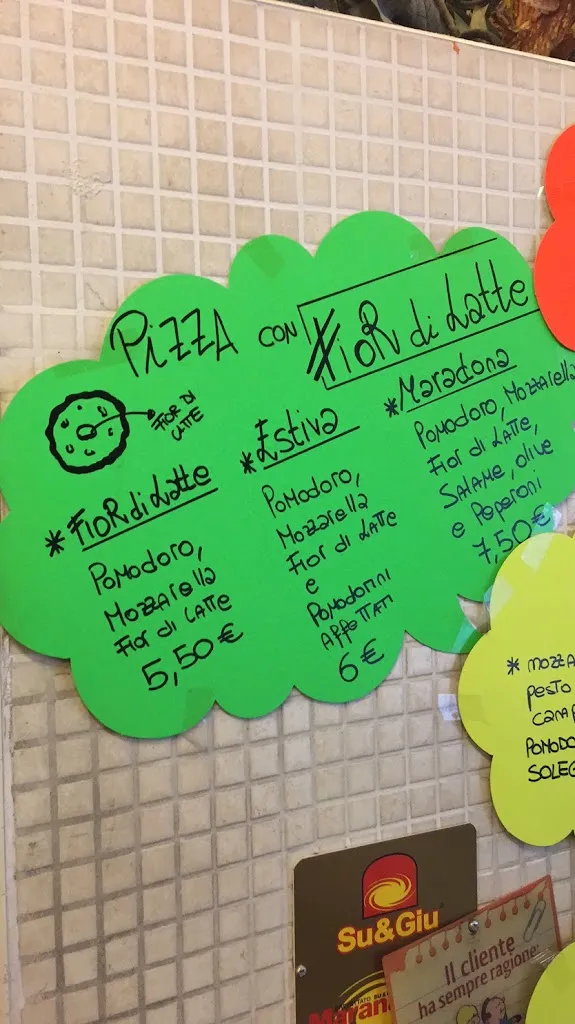 PiZZA CON FioR di Latte
FIOR DI
LATTE
* FIOR di Latte
Pomodoro,
Mozzarella
Fior di LATTE
5,50 €
* Estiva
Pomodoro,
Mozzarella
Fior di LATTE
e
Pomodorini
AFFETTATI
6 €
* Maradona
Pomodoro, Mozzarella
Fior di LATTE,
SALAME, olive
e Peperoni
7,50 €
* MOZZA
pesto
POMODO
SOLEG
Su&Giu
Il cliente
ha sempre ragione: